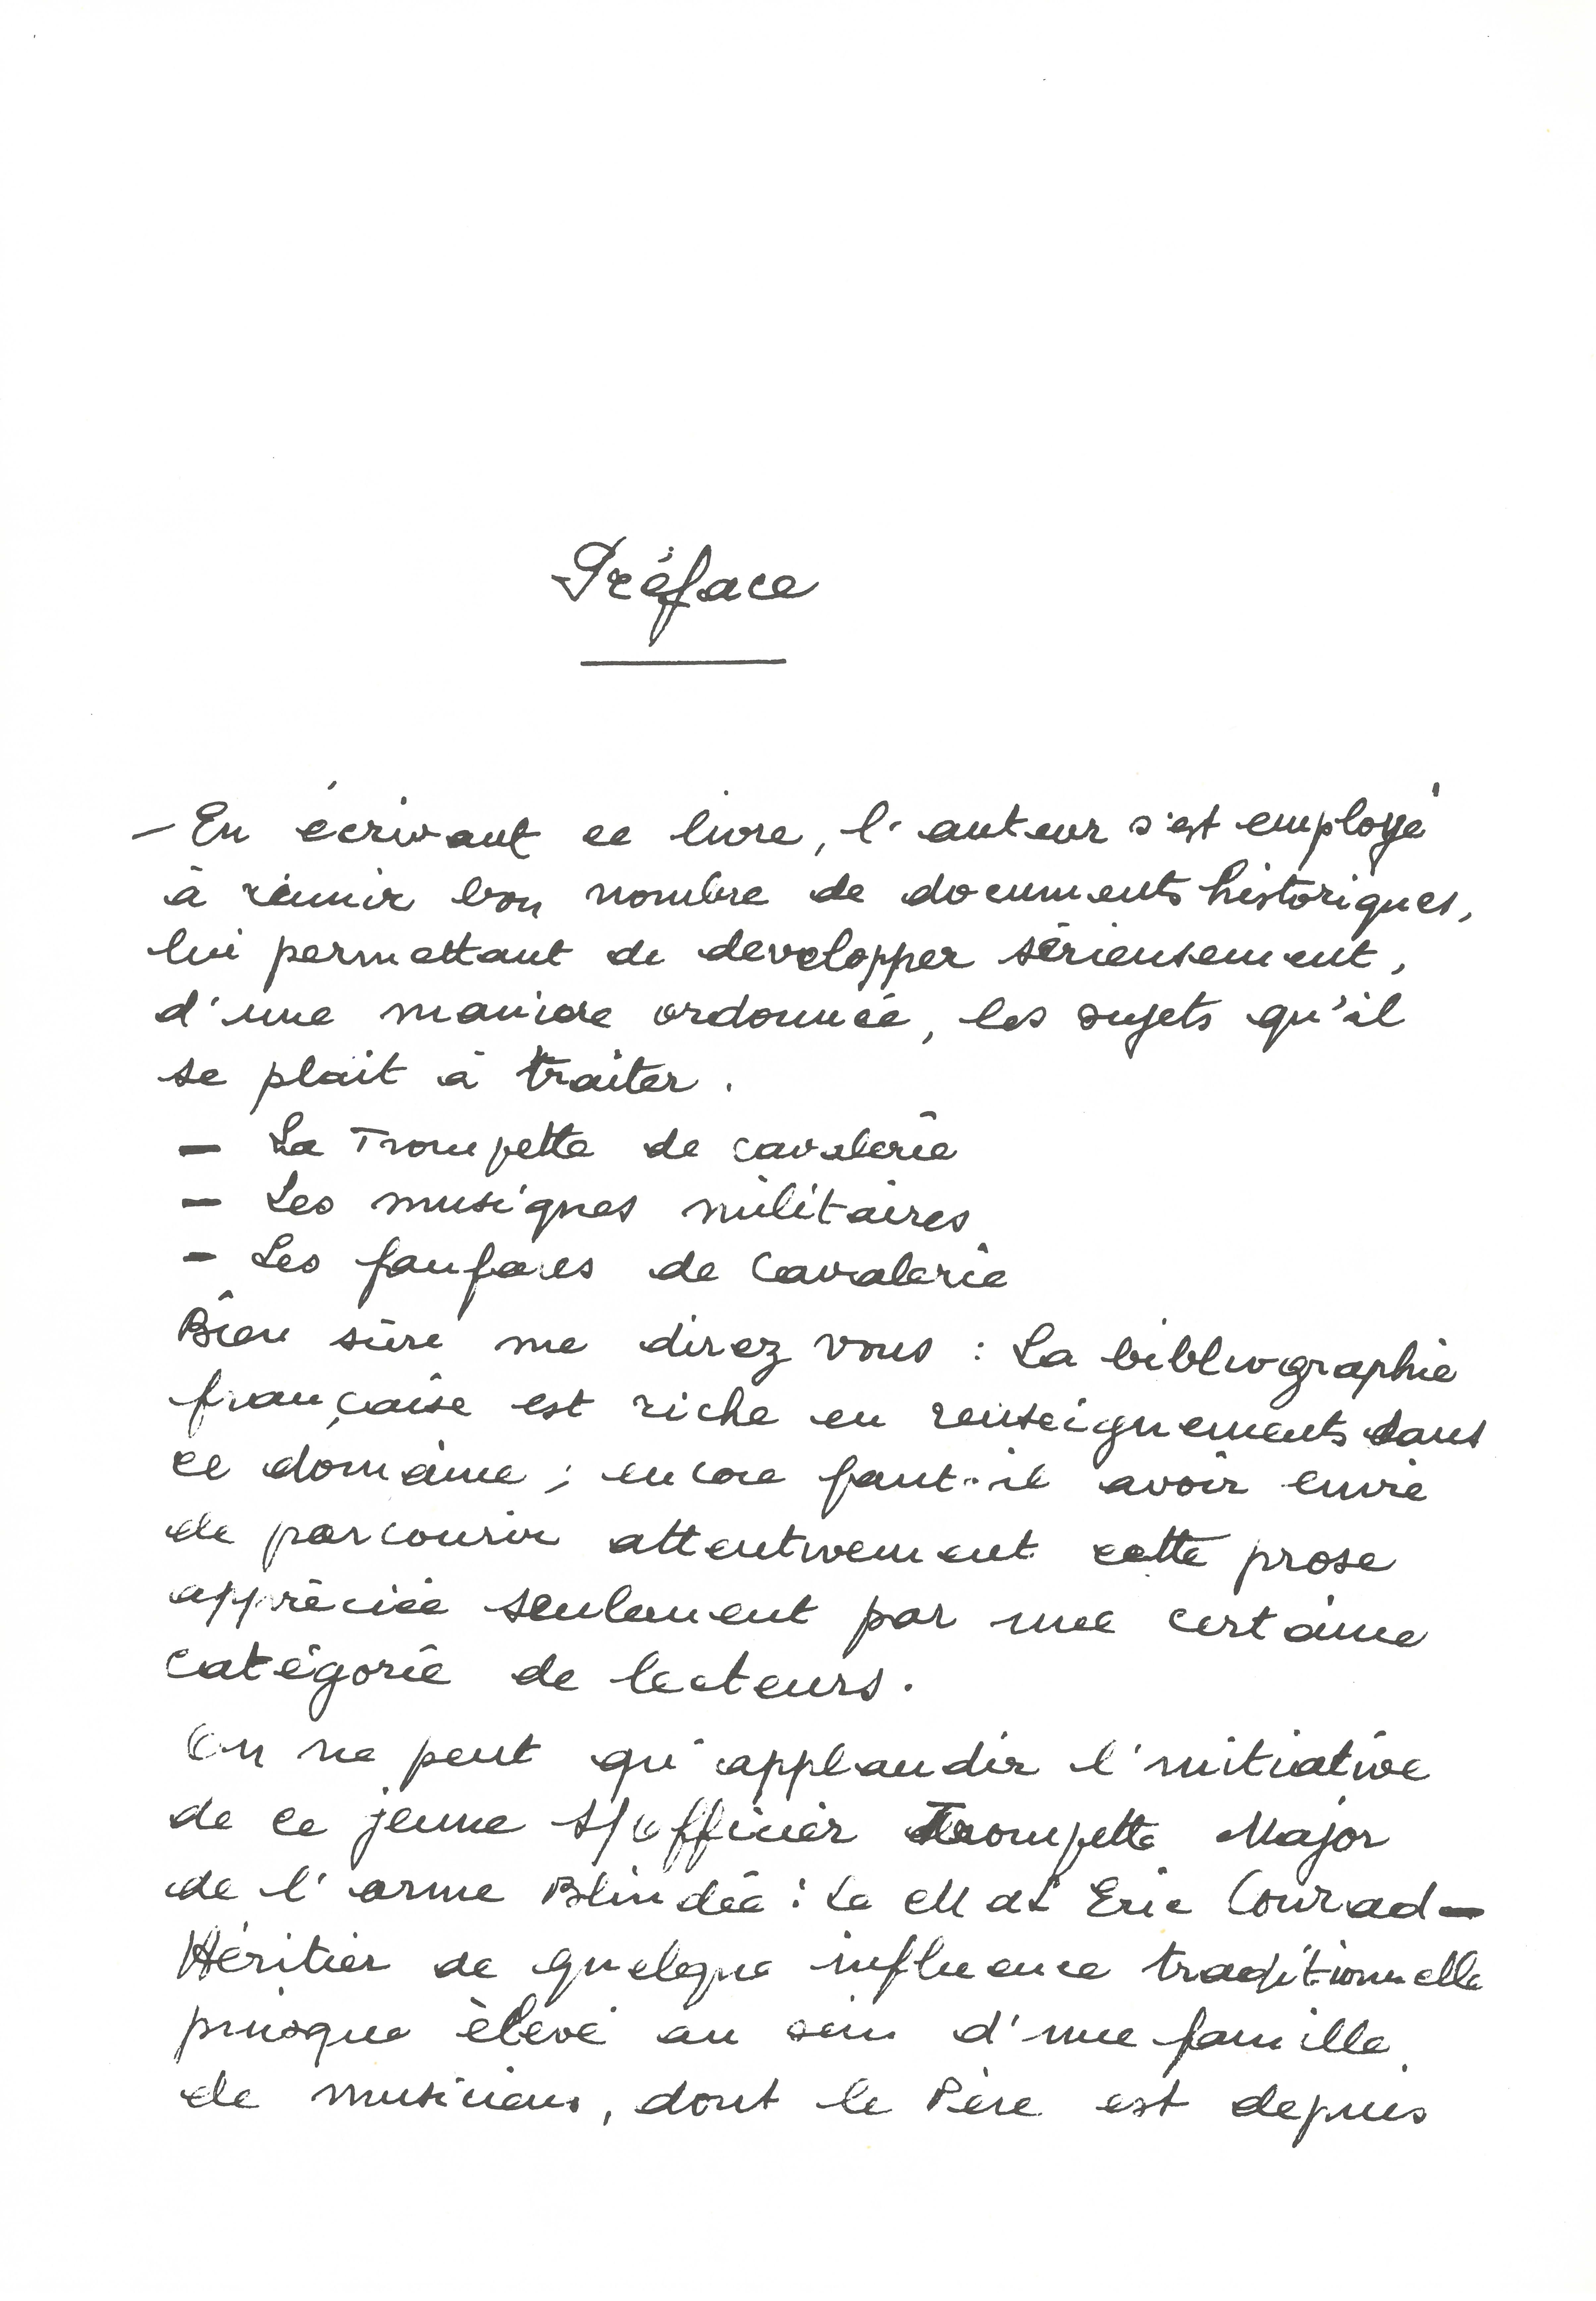 Préface
– En écrivant ce livre, l'auteur s'est employé
à réunir bon nombre de documents historiques,
lui permettant de developper sérieusement,
d'une manière ordonnée, les sujets qu'il
se plait à traiter.
– La Trompette de cavalerie
– Les musiques militaires
– Les fanfares de Cavalerie
Bien sûre me direz vous : La bibliographie
française est riche en renseignements dans
ce domaine ; encore faut-il avoir envie
de parcourir attentivement cette prose
appréciée seulement par une certaine
catégorie de lecteurs.
On ne peut qu'applaudir l'initiative
de ce jeune s/officier Trompette Major
de l'arme Blindée : Le Eric Conrad –
Héritier de quelque influence traditionnelle
puisque élevé au sein d'une famille
de musiciens, dont le Père est depuis